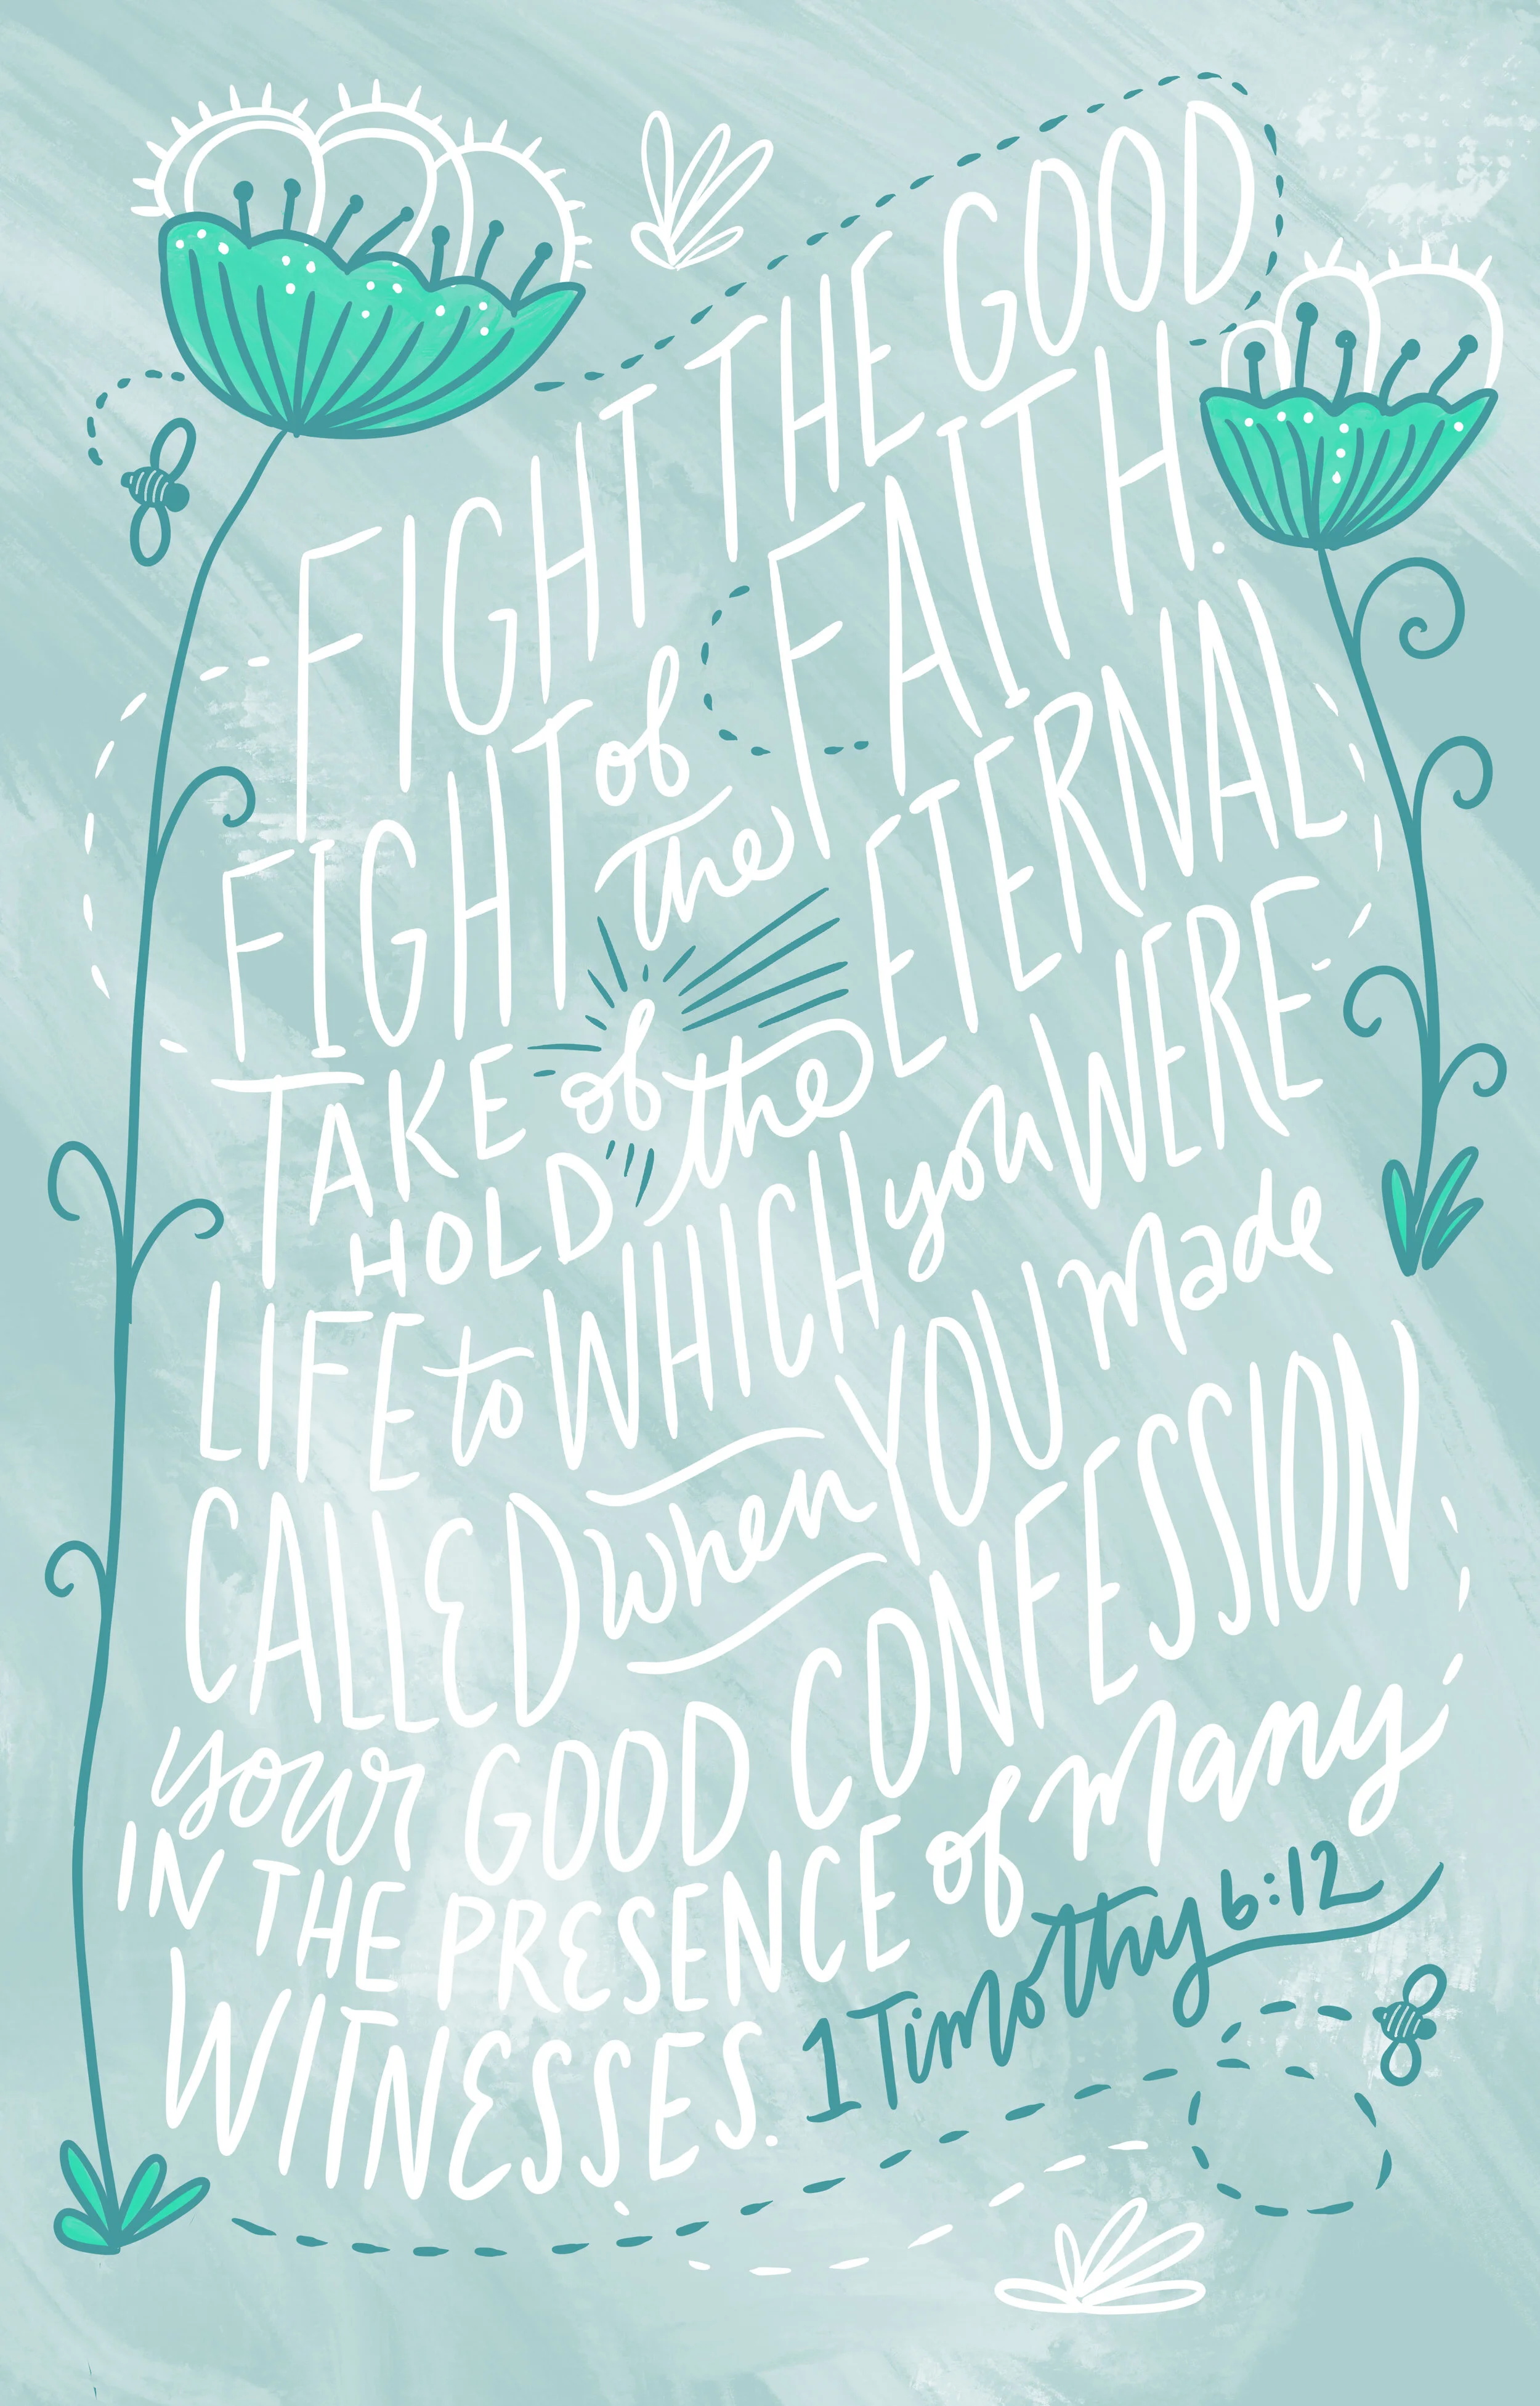 FIGHT THE GOOD
FIGHT of the FAITH.
TAKE HOLD of the ETERNAL
LIFE to WHICH you WERE
CALLED when YOU made
your GOOD CONFESSION
IN THE PRESENCE of many
WITNESSES. 1 Timothy 6:12